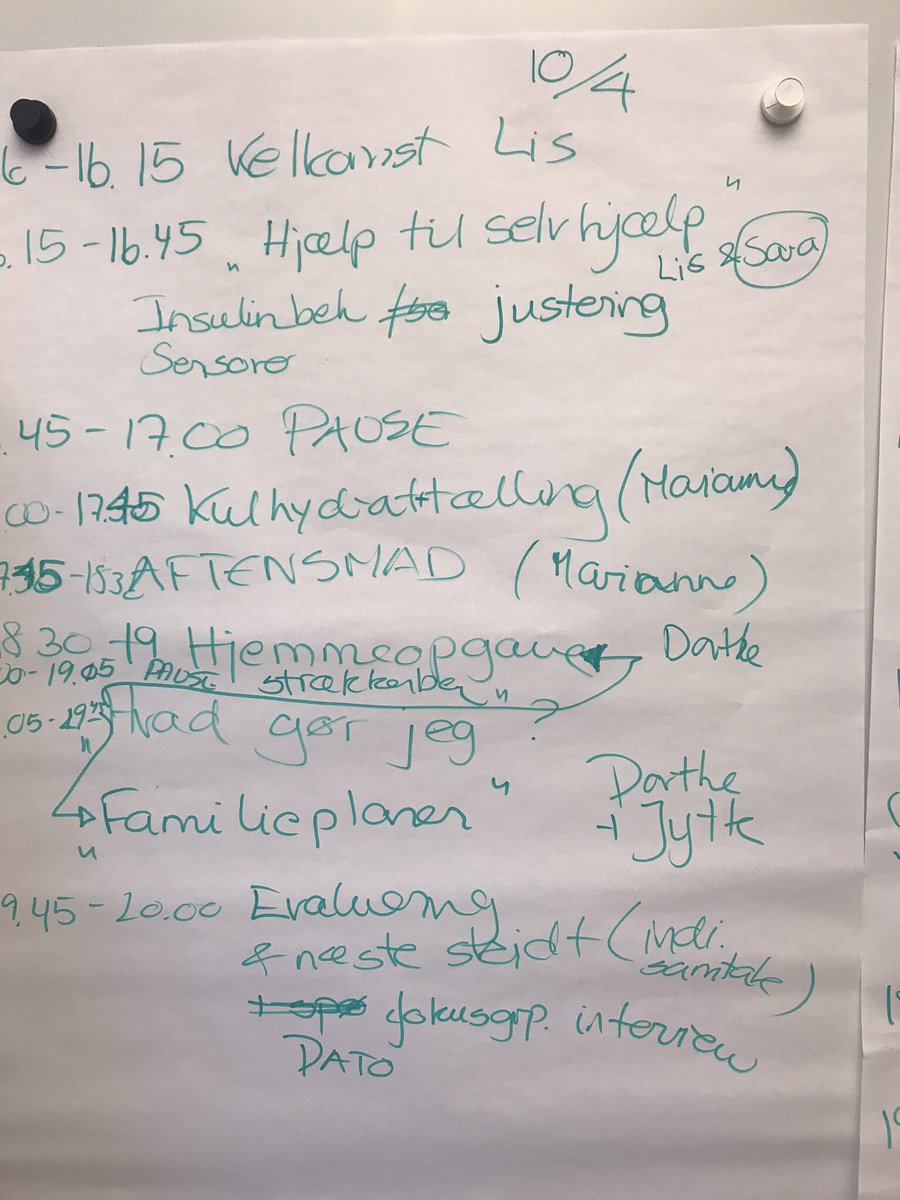 10/4
16-16.15 Velkomst Lis
.15-16.45 "Hjælp til selvhjælp"
Lis & Sara
Insulinbeh justering
Sensorer
.45-17.00 PAUSE
.00-17.45 Kulhydrattælling (Marianne)
7.45-1830 AFTENSMAD (Marianne)
8 30-19 Hjemmeopgave Dorthe
00-19.05 PAUSE strække ben
.05-1945 "Hvad gør jeg"?
"Familieplaner" Dorthe
+ Jytte
9.45-20.00 Evaluering
& næste skidt (indi.
samtale)
fokusgrp. interview
DATO